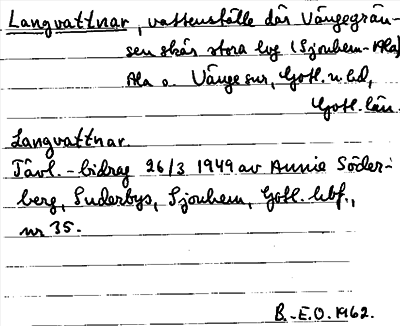 Langvattnar, vattenställe där Vängegrän-
sen skär stora hvg (Sjonhem-Ala)
Ala o. Vänge snr, Gotl. n. hd,
Gotl. län.
Langvattnar.
Tävl.-bidrag 26/3 1949 av Annie Söder-
berg, Suderbys, Sjonhem, Gotl. hbf.,
nr 35.
B.-E.O. 1962.